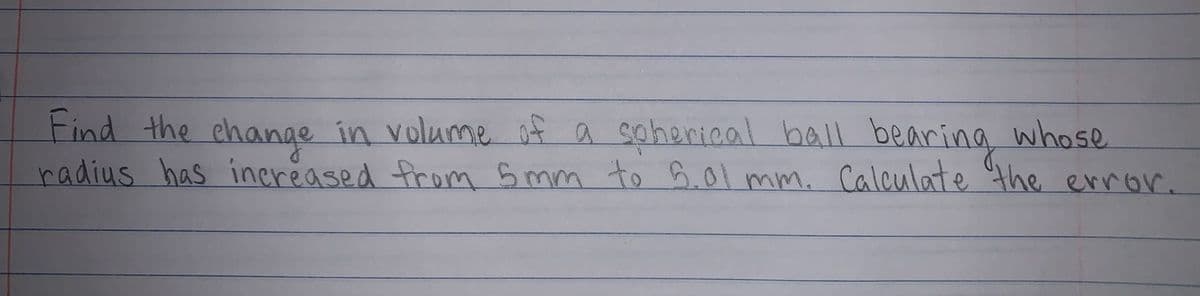 Find the change in volume of a spherical ball bearing whose
radius has increased from 5mm to 5.01 mm. Calculate the error.